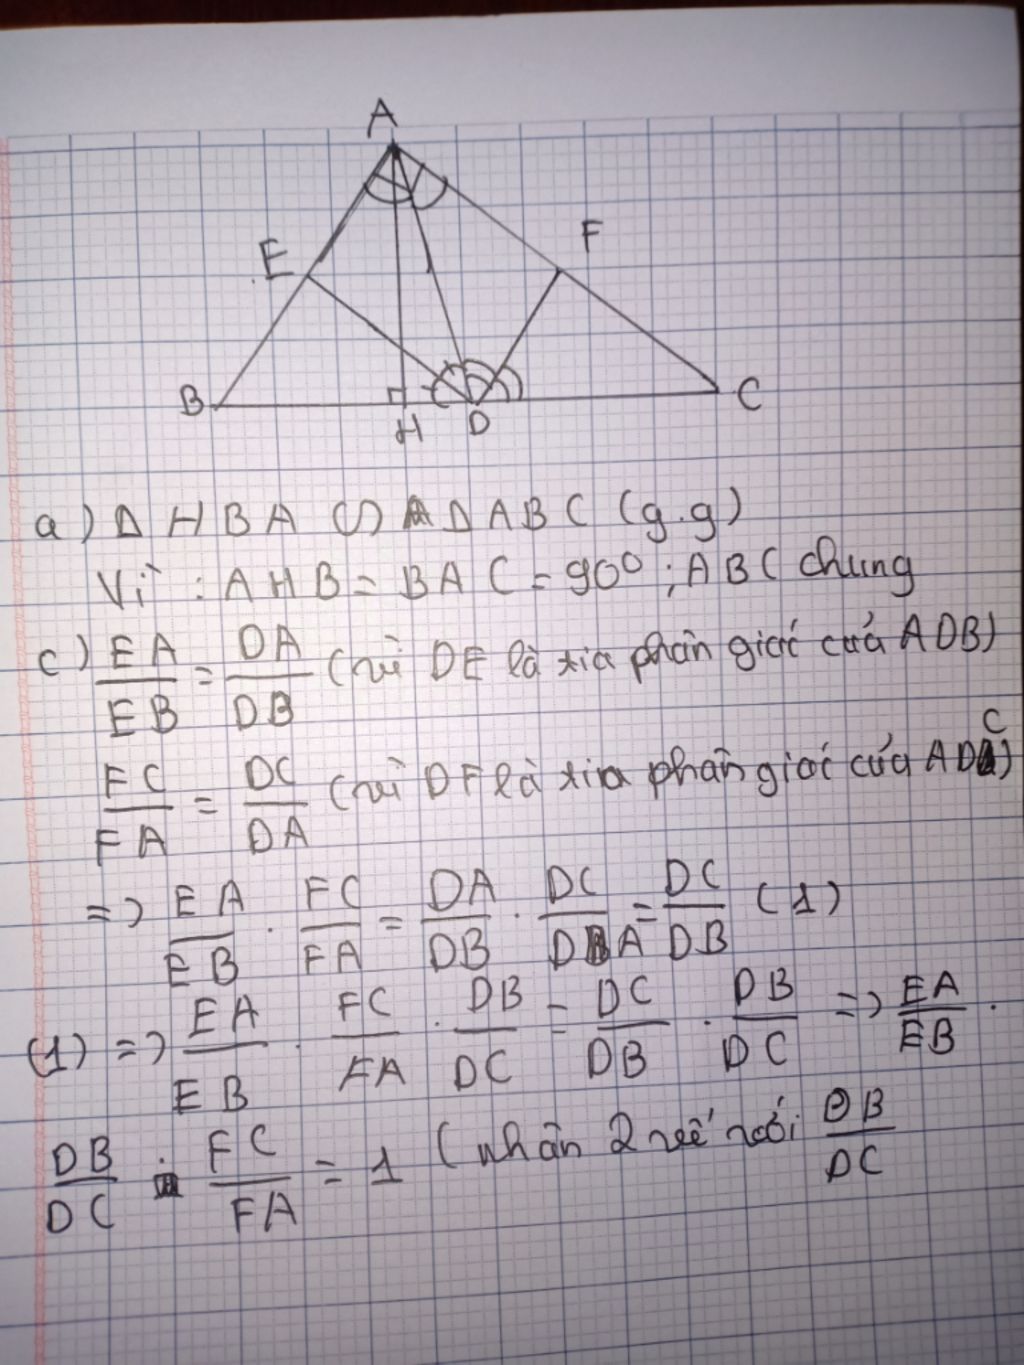 A
E
F
B
H
D
C
a) Δ HBA ᔕ Δ ABC (g.g)
Vì : AHB = BAC = 90⁰ ; ABC chung
c) EA/EB = DA/DB (vì DE là tia phân giác của ADB)
FC/FA = DC/DA (vì DF là tia phân giác của ADC)
=> EA/EB . FC/FA = DA/DB . DC/DA = DC/DB (1)
(1) => EA/EB . FC/FA . DB/DC = DC/DB . DB/DC => EA/EB .
DB/DC . FC/FA = 1 (nhân 2 vế với DB/DC